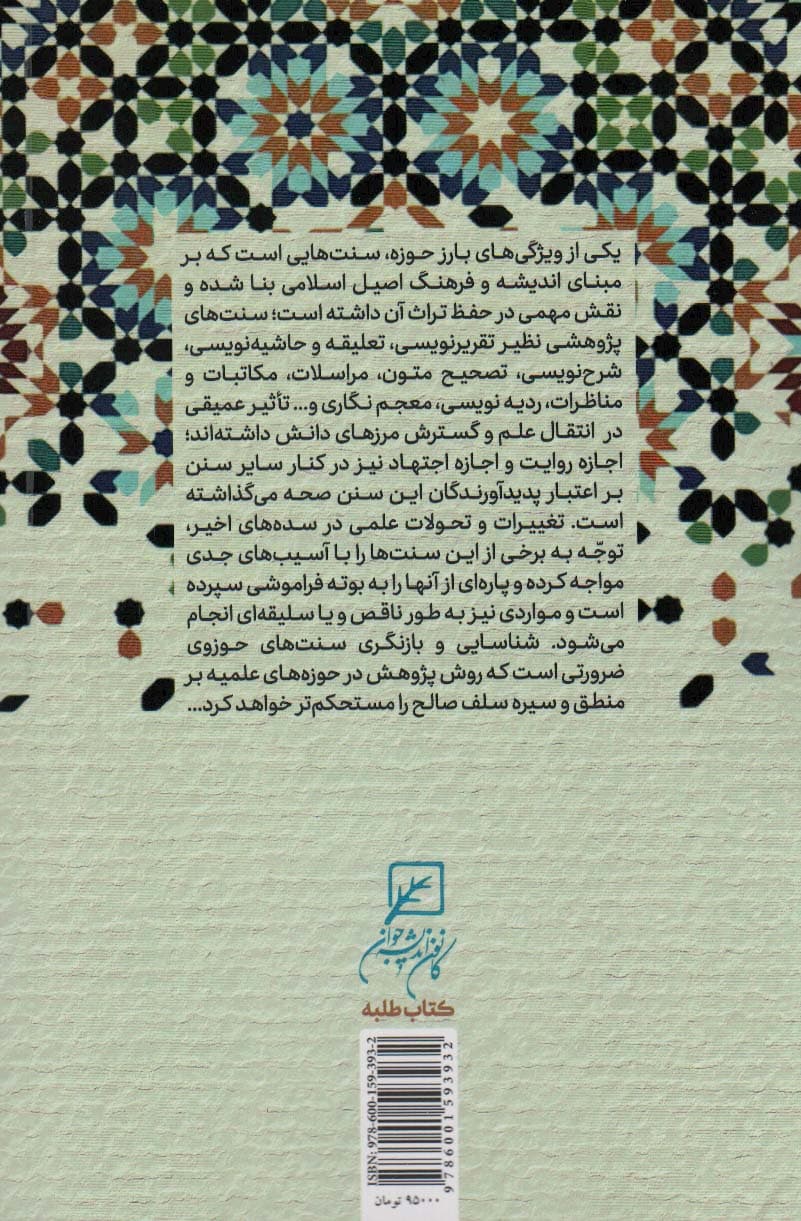 یکی از ویژگی‌های بارز حوزه، سنت‌هایی است که بر
مبنای اندیشه و فرهنگ اصیل اسلامی بنا شده و
نقش مهمی در حفظ تراث آن داشته است؛ سنت‌های
پژوهشی نظیر تقریرنویسی، تعلیقه و حاشیه‌نویسی،
شرح‌نویسی، تصحیح متون، مراسلات، مکاتبات و
مناظرات، ردیه نویسی، معجم نگاری و... تأثیر عمیقی
در انتقال علم و گسترش مرزهای دانش داشته‌اند؛
اجازه روایت و اجازه اجتهاد نیز در کنار سایر سنن
بر اعتبار پدیدآورندگان این سنن صحه می‌گذاشته
است. تغییرات و تحولات علمی در سده‌های اخیر،
توجّه به برخی از این سنت‌ها را با آسیب‌های جدی
مواجه کرده و پاره‌ای از آنها را به بوته فراموشی سپرده
است و مواردی نیز به طور ناقص و یا سلیقه‌ای انجام
می‌شود. شناسایی و بازنگری سنت‌های حوزوی
ضرورتی است که روش پژوهش در حوزه‌های علمیه بر
منطق و سیره سلف صالح را مستحکم‌تر خواهد کرد...
کانون اندیشه جوان
کتاب طلبه
ISBN: 978-600-159-393-2
9786001593932
۹۵۰۰۰ تومان